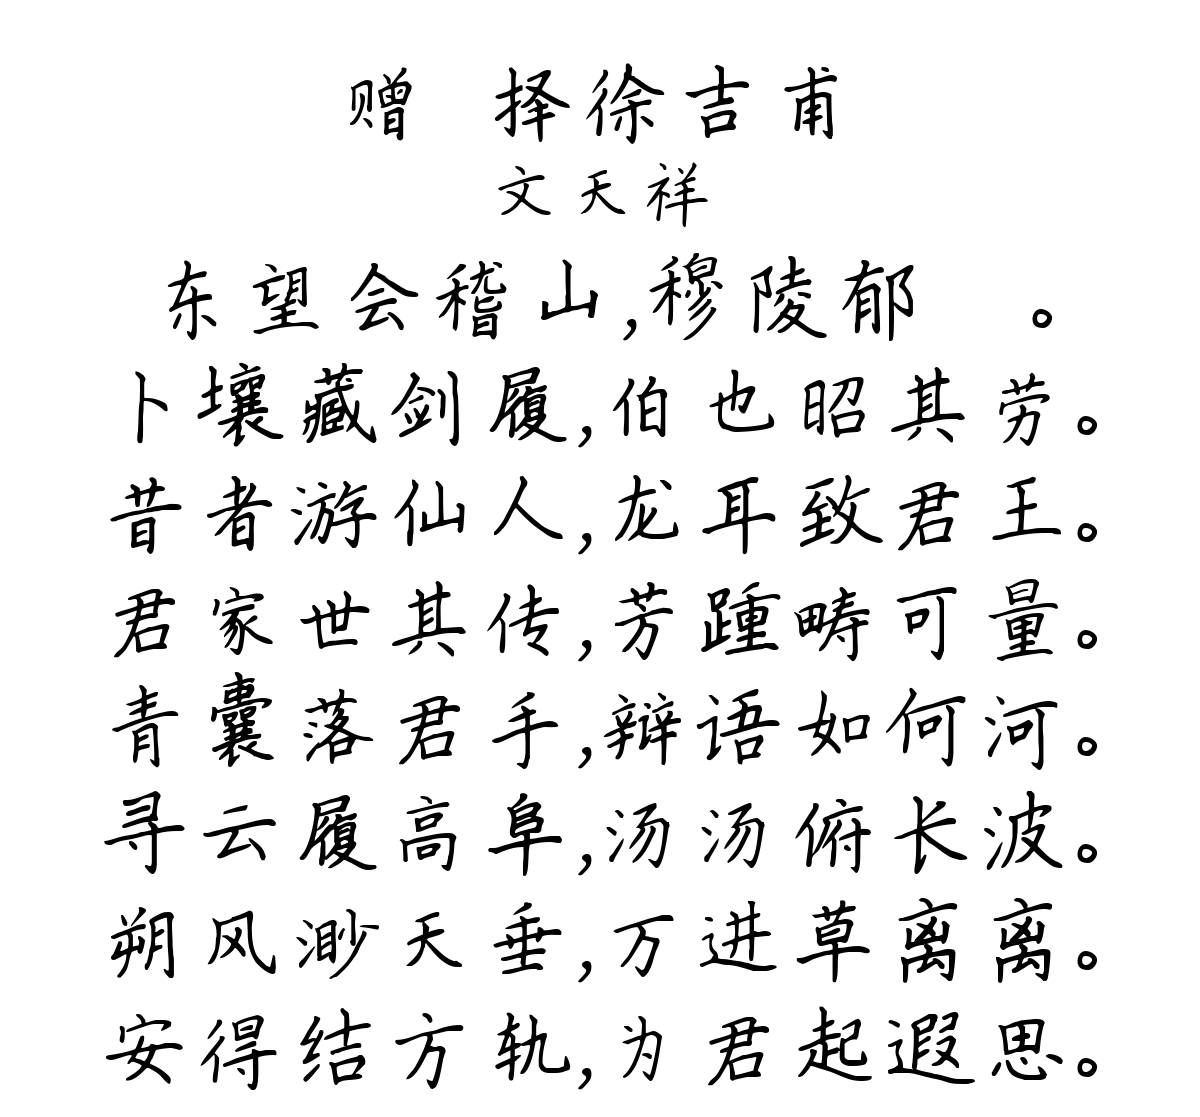 赠 择徐吉甫
文天祥
东望会稽山,穆陵郁 。
卜壤藏剑履,伯也昭其劳。
昔者游仙人,龙耳致君王。
君家世其传,芳踵畴可量。
青囊落君手,辩语如何河。
寻云履高阜,汤汤俯长波。
朔风渺天垂,万进草离离。
安得结方轨,为君起遐思。